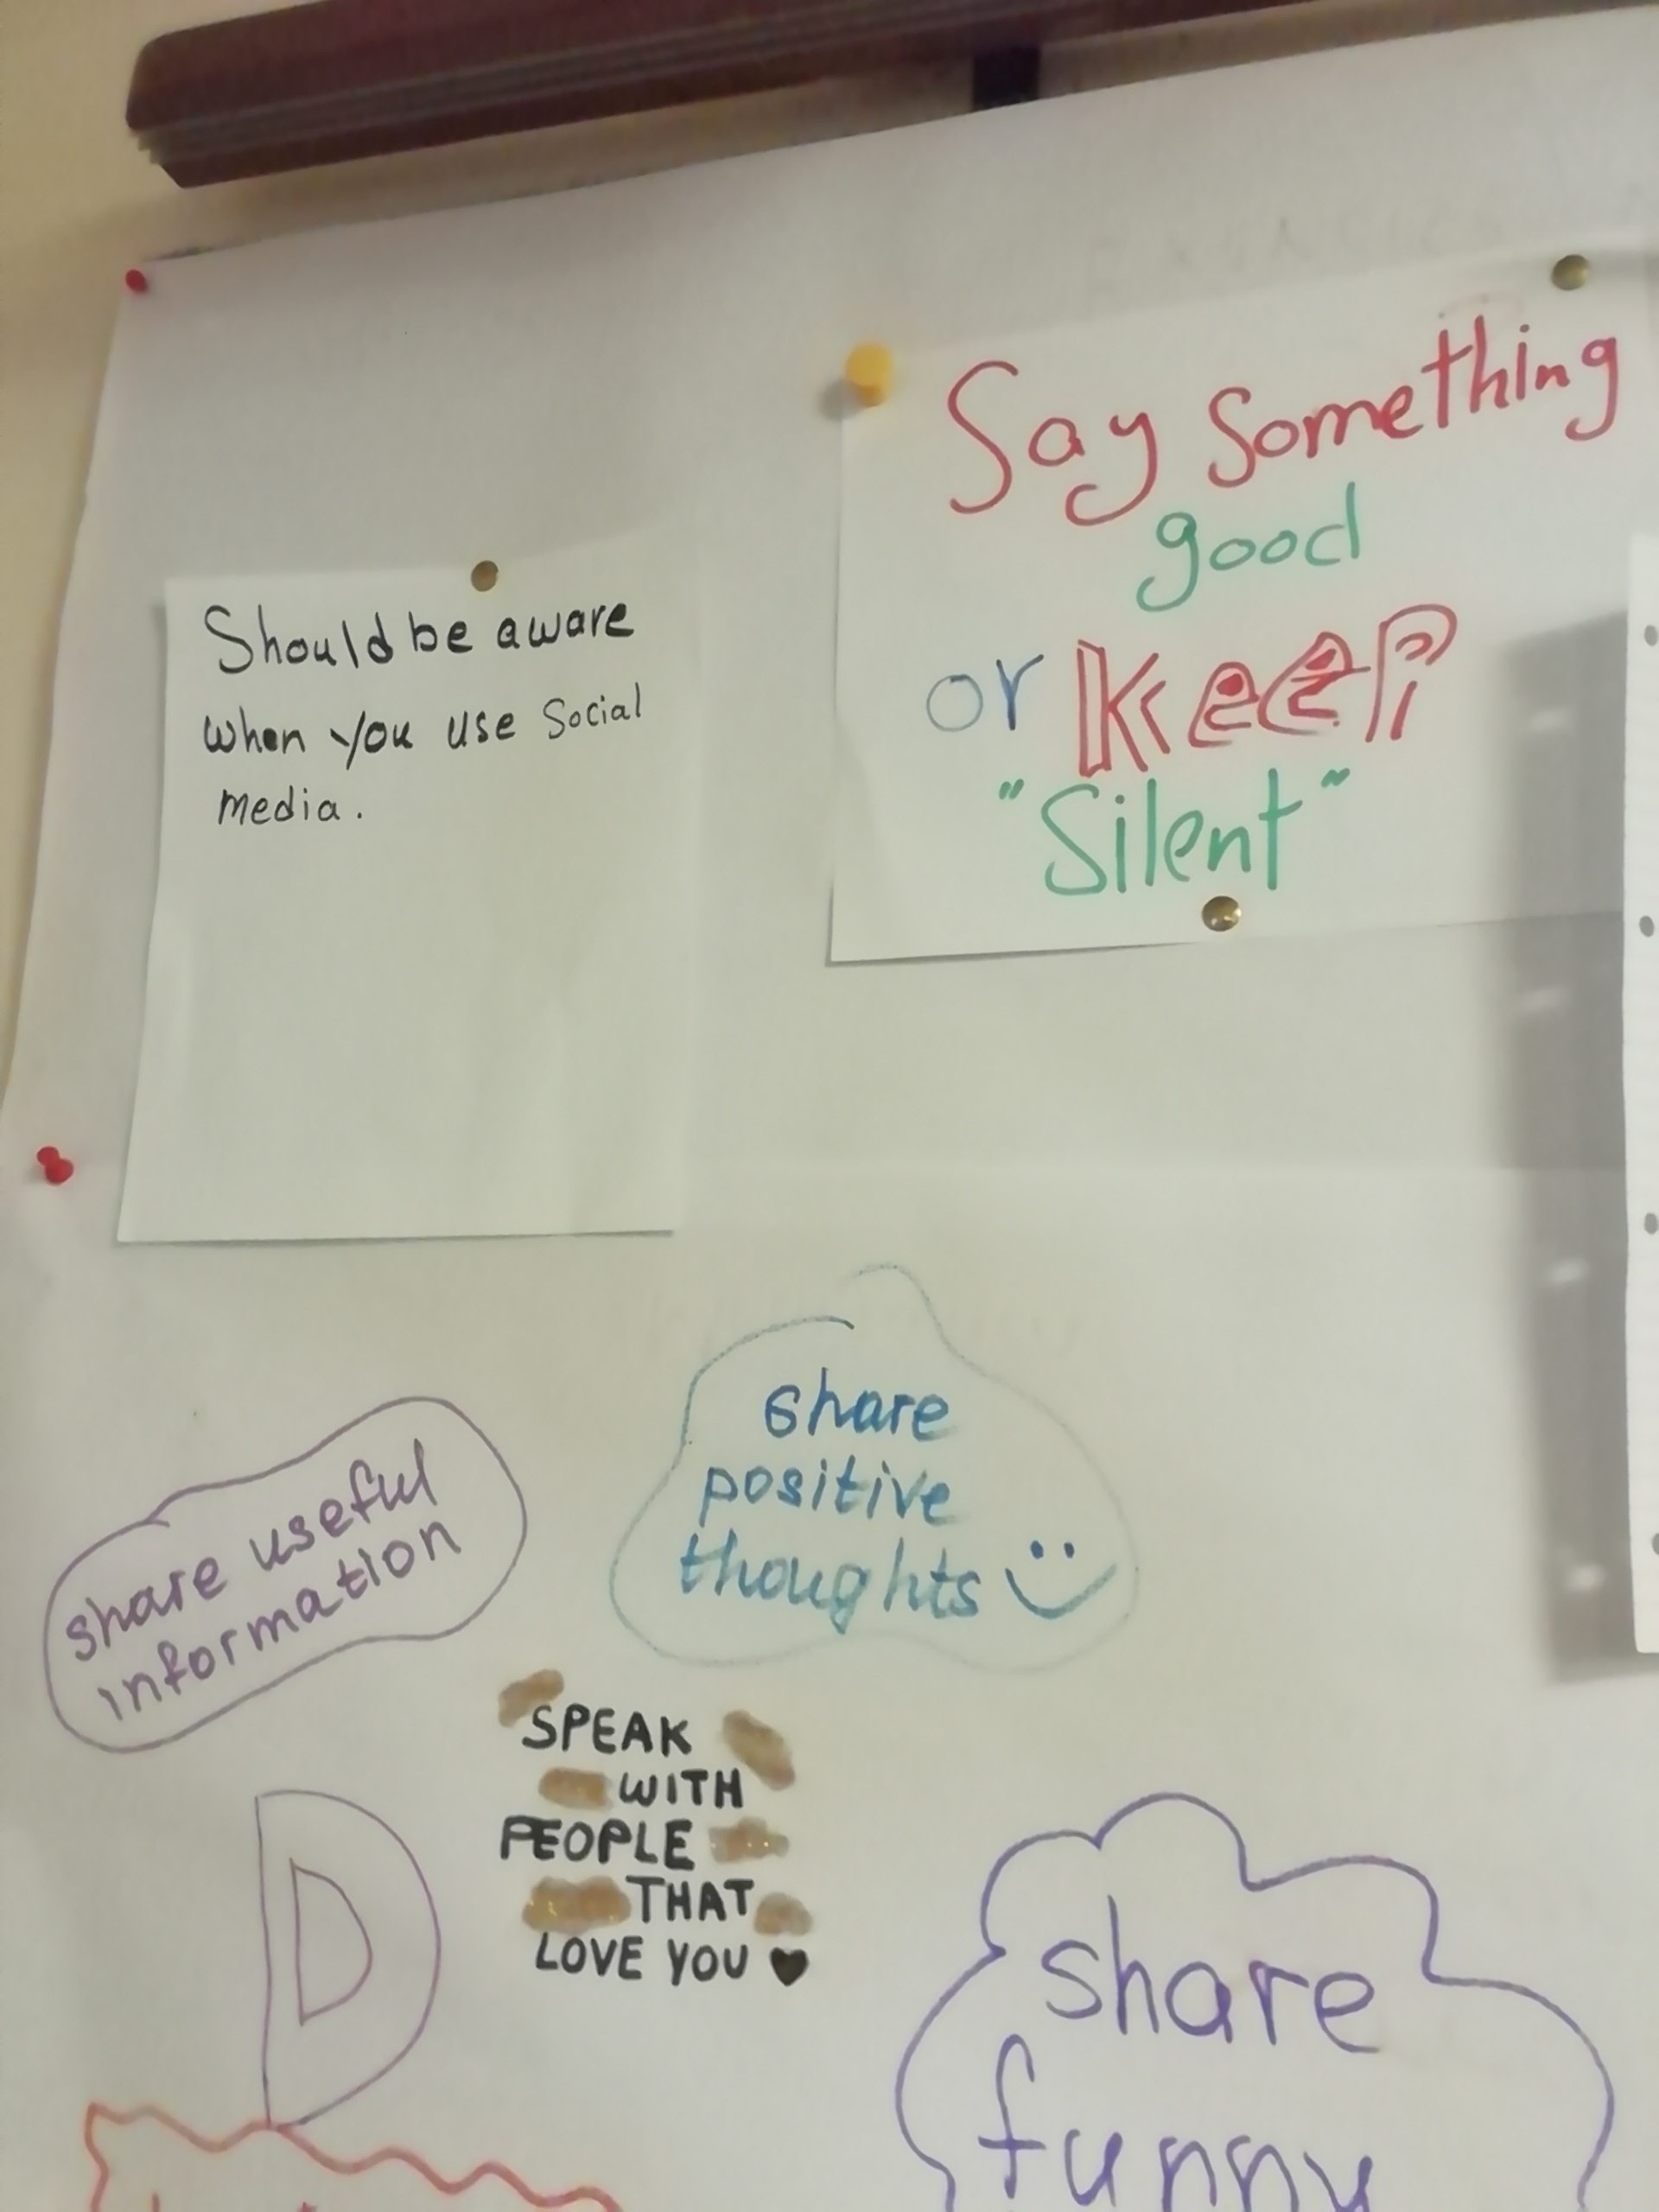 Say Something
good
or Keep
"Silent"
Should be aware
when you use Social
media.
share
positive
thoughts
share useful
information
SPEAK
WITH
PEOPLE
THAT
LOVE YOU
D
share
funny